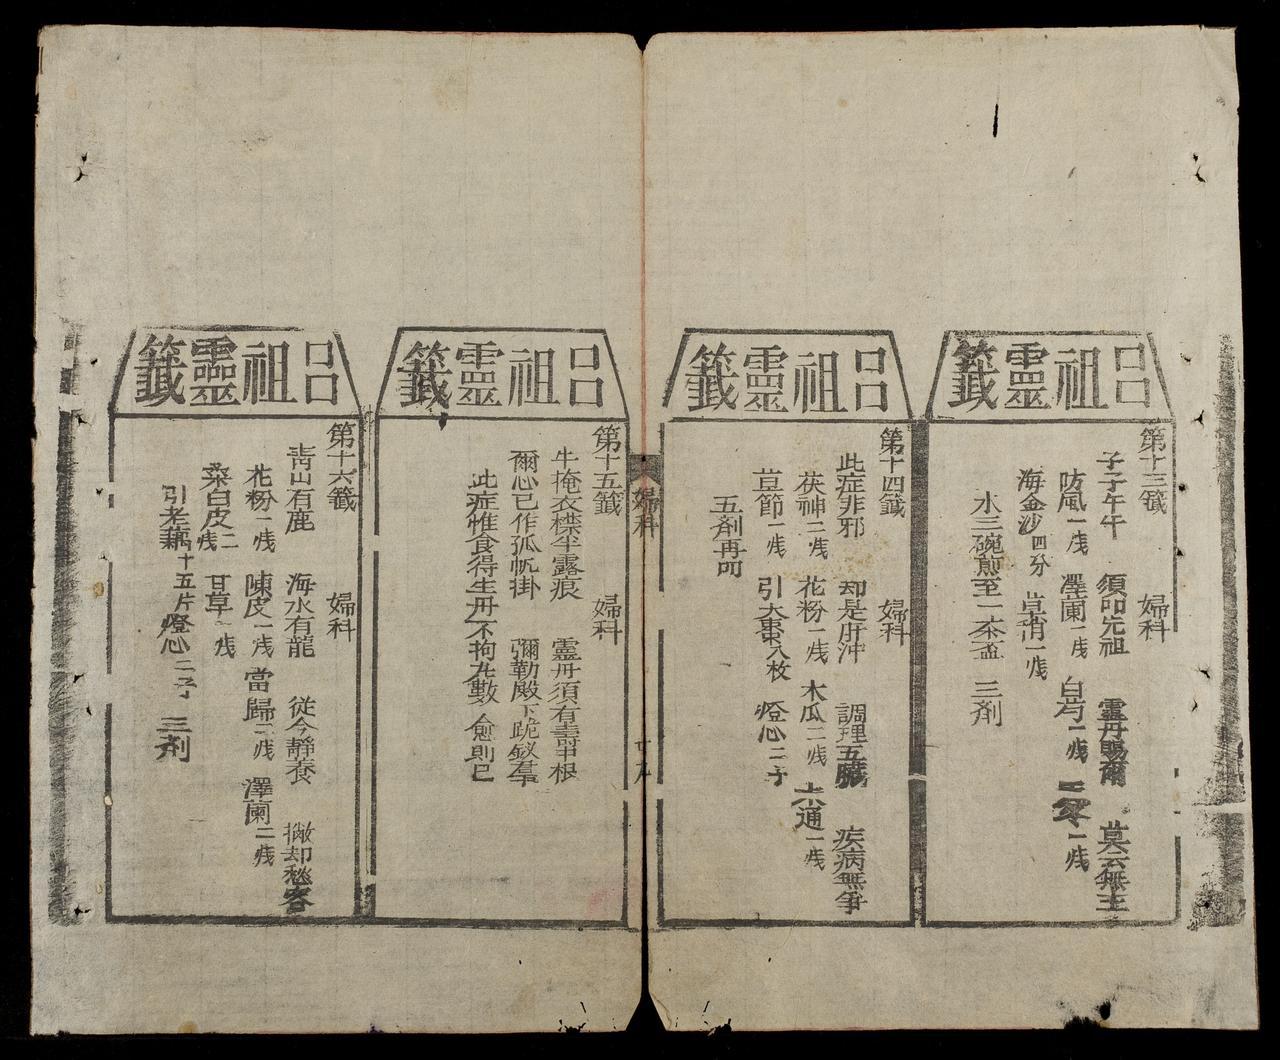 呂祖靈籤
第十三籤 婦科
子子午午 須叩先祖 靈丹賜爾 莫云無主
防風一戔 澤蘭一戔 白勺一戔 一戔
海金沙四分 草稍一戔
水三碗煎至一茶盃 三劑
呂祖靈籤
第十四籤 婦科
此症非邪 却是肝沖 調理五臟 疾病無爭
茯神二戔 花粉一戔 木瓜二戔 木通一戔
苴節一戔 引大棗八枚 燈心二子
五劑再叩
婦科
呂祖靈籤
第十五籤 婦科
牛掩衣襟半露痕 靈丹須有壽甲根
爾心已作孤帆掛 彌勒殿下跪釵羣
此症惟食得生丹 不拘尤數 愈則已
呂祖靈籤
第十六籤 婦科
靑山有鹿 海水有龍 從今靜養 撇却愁容
花粉一戔 陳皮一戔 當歸二戔 澤蘭二戔
桑白皮二戔 甘草一戔
引老藕十五片 燈心二子 三劑